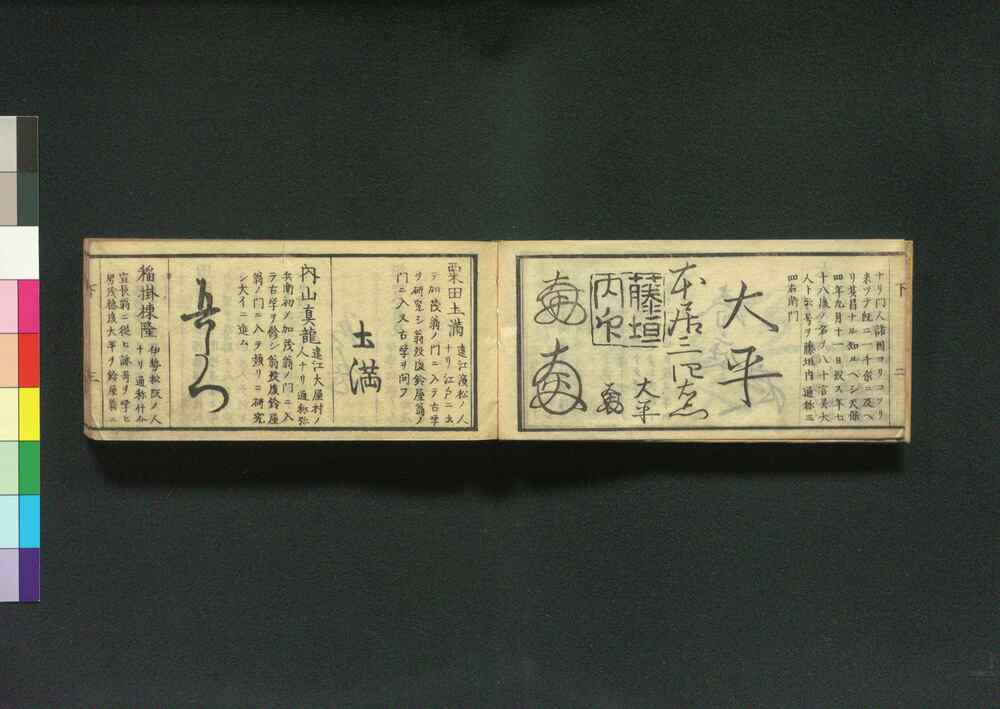 ナリ門人諸国ヨリコソリ
来ツテ既ニ一千余ニ及ヘ
リ其昌ナル知ルヘシ天保
四年九月十一日歿ス年七
十八後ノ名ヲ八十言霊大
人ト云号ヲ藤垣内通称三
四右衛門
大平
本居三四右衛門
大平
藤垣
内印
栗田土満 遠江濱松ノ人
ナリ江戸ニ出
テ加茂翁ノ門ニ入ラ古学
ヲ研究シ翁歿後鈴屋翁ノ
門ニ入又古学ヲ問フ
土満
内山真龍 遠江大屋村ノ
人ナリ通称弥
兵衛初メ加茂翁ノ門ニ入
テ古学ヲ修シ翁歿後鈴屋
翁ノ門ニ入ヲ頻リニ研究
シ大イニ進ム
稲掛棟隆 伊勢松阪ノ人
ナリ通称什介
宣長翁ニ従ヒ詠哥ヲ学ヒ
下
二